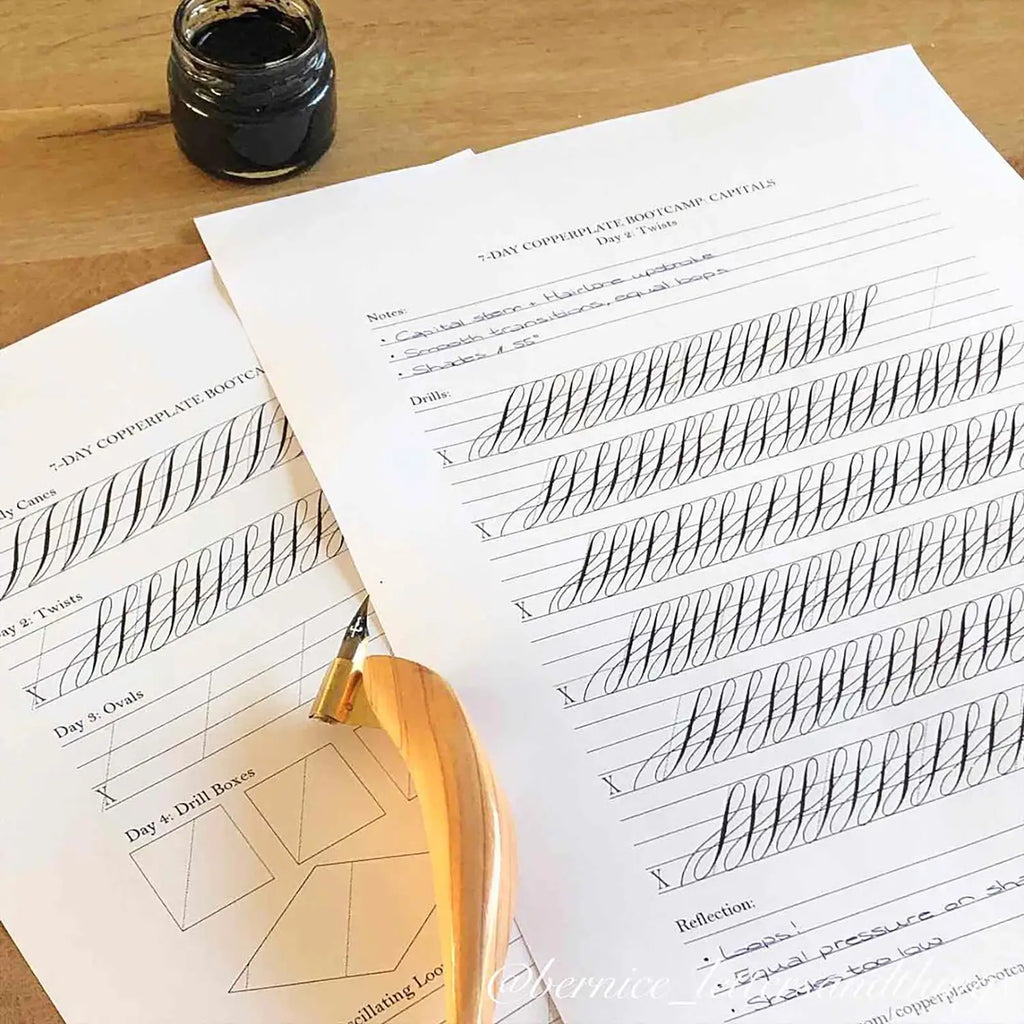 7-DAY COPPERPLATE BOOTCAMP: CAPITALS
Day 2: Twists
Notes:
• Capital stem + Hairline upstroke
• Smooth transitions, equal loops
• Shades 55°
Drills:
X
X
X
X
X
X
Reflection:
• Loops!
• Equal pressure on sha
• Shades too low
.com/copperplatebootca
7-DAY COPPERPLATE BOOTCA
ly Canes
ay 2: Twists
X
Day 3: Ovals
X
Day 4: Drill Boxes
scillating Loo